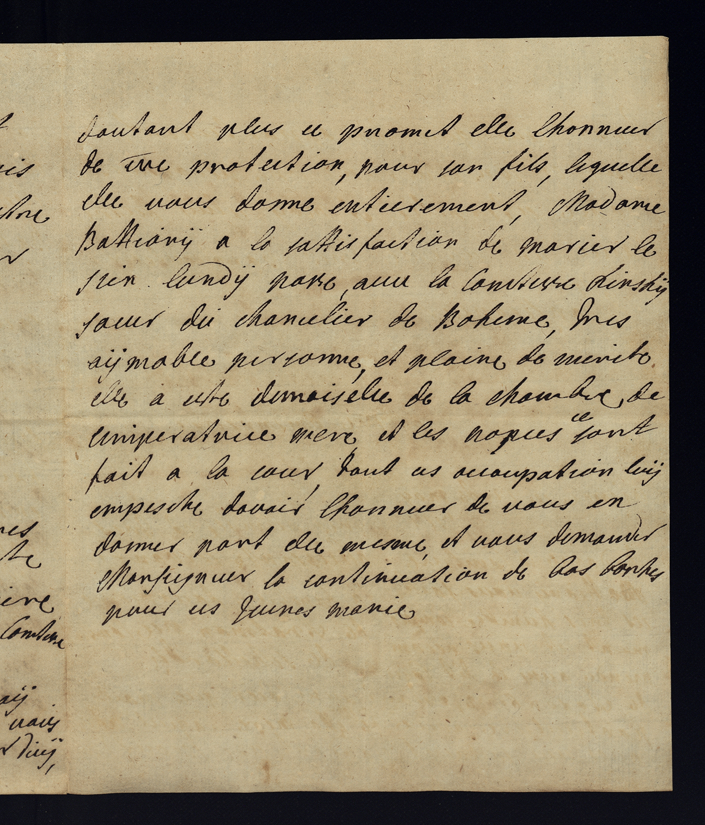 dautant plus ce promet elle lhonneur
de vre protection, pour son fils, lequelle
elle vous donne entierement, Madame
Battianÿ a la sattisfaction de marier le
sien lundÿ passe, avec la Comtesse Kinskÿ
sœur du chancelier de Boheme, tres
aÿmable personne, et plaine de merite
elle a este demoiselle de la chambre, de
limperatrice mere, et les nopces ce sont
fait a la cour, dont ces occupation luÿ
empesche davoir lhonneur de vous en
donner part elle mesme, et vous demander
Monseigneur la continuation de vos bontes
pour ces jeunes marie